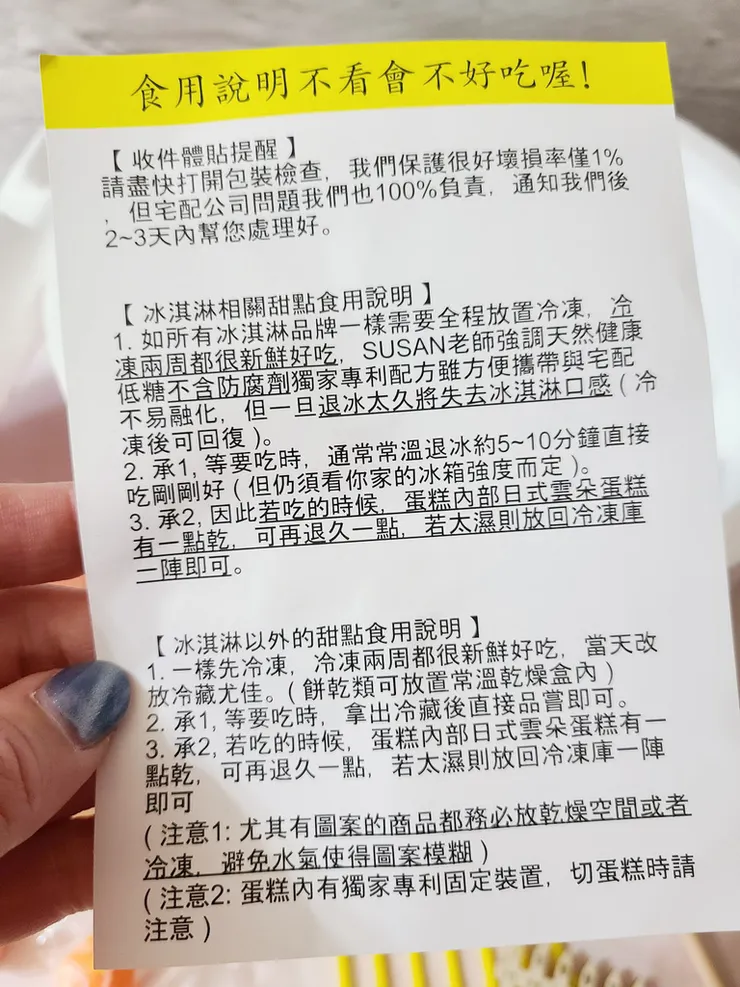 食用說明不看會不好吃喔!
【 收件體貼提醒 】
請盡快打開包裝檢查，我們保護很好壞損率僅1%
，但宅配公司問題我們也100%負責，通知我們後
2~3天內幫您處理好。
【 冰淇淋相關甜點食用說明 】
1. 如所有冰淇淋品牌一樣需要全程放置冷凍，冷
凍兩周都很新鮮好吃，SUSAN老師強調天然健康
低糖不含防腐劑獨家專利配方雖方便攜帶與宅配
不易融化，但一旦退冰太久將失去冰淇淋口感 ( 冷
凍後可回復 )。
2. 承1, 等要吃時，通常常溫退冰約5~10分鐘直接
吃剛剛好 ( 但仍須看你家的冰箱強度而定 )。
3. 承2, 因此若吃的時候，蛋糕內部日式雲朵蛋糕
有一點乾，可再退久一點，若太濕則放回冷凍庫
一陣即可。
【 冰淇淋以外的甜點食用說明 】
1. 一樣先冷凍，冷凍兩周都很新鮮好吃，當天改
放冷藏尤佳。( 餅乾類可放置常溫乾燥盒內 )
2. 承1, 等要吃時，拿出冷藏後直接品嘗即可。
3. 承2, 若吃的時候，蛋糕內部日式雲朵蛋糕有一
點乾，可再退久一點，若太濕則放回冷凍庫一陣
即可
( 注意1: 尤其有圖案的商品都務必放乾燥空間或者
冷凍，避免水氣使得圖案模糊 )
( 注意2: 蛋糕內有獨家專利固定裝置，切蛋糕時請
注意 )